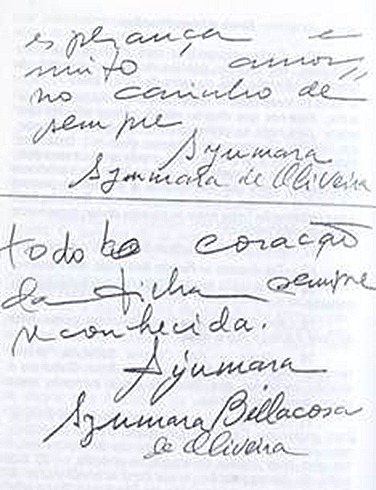 esperança e
muito amor,,
no carinho de
sempre
Syumara
Syumara de Oliveira
todo o coração
da sempre
reconhecida.
Syumara
Syumara Bellacosa
de Oliveira